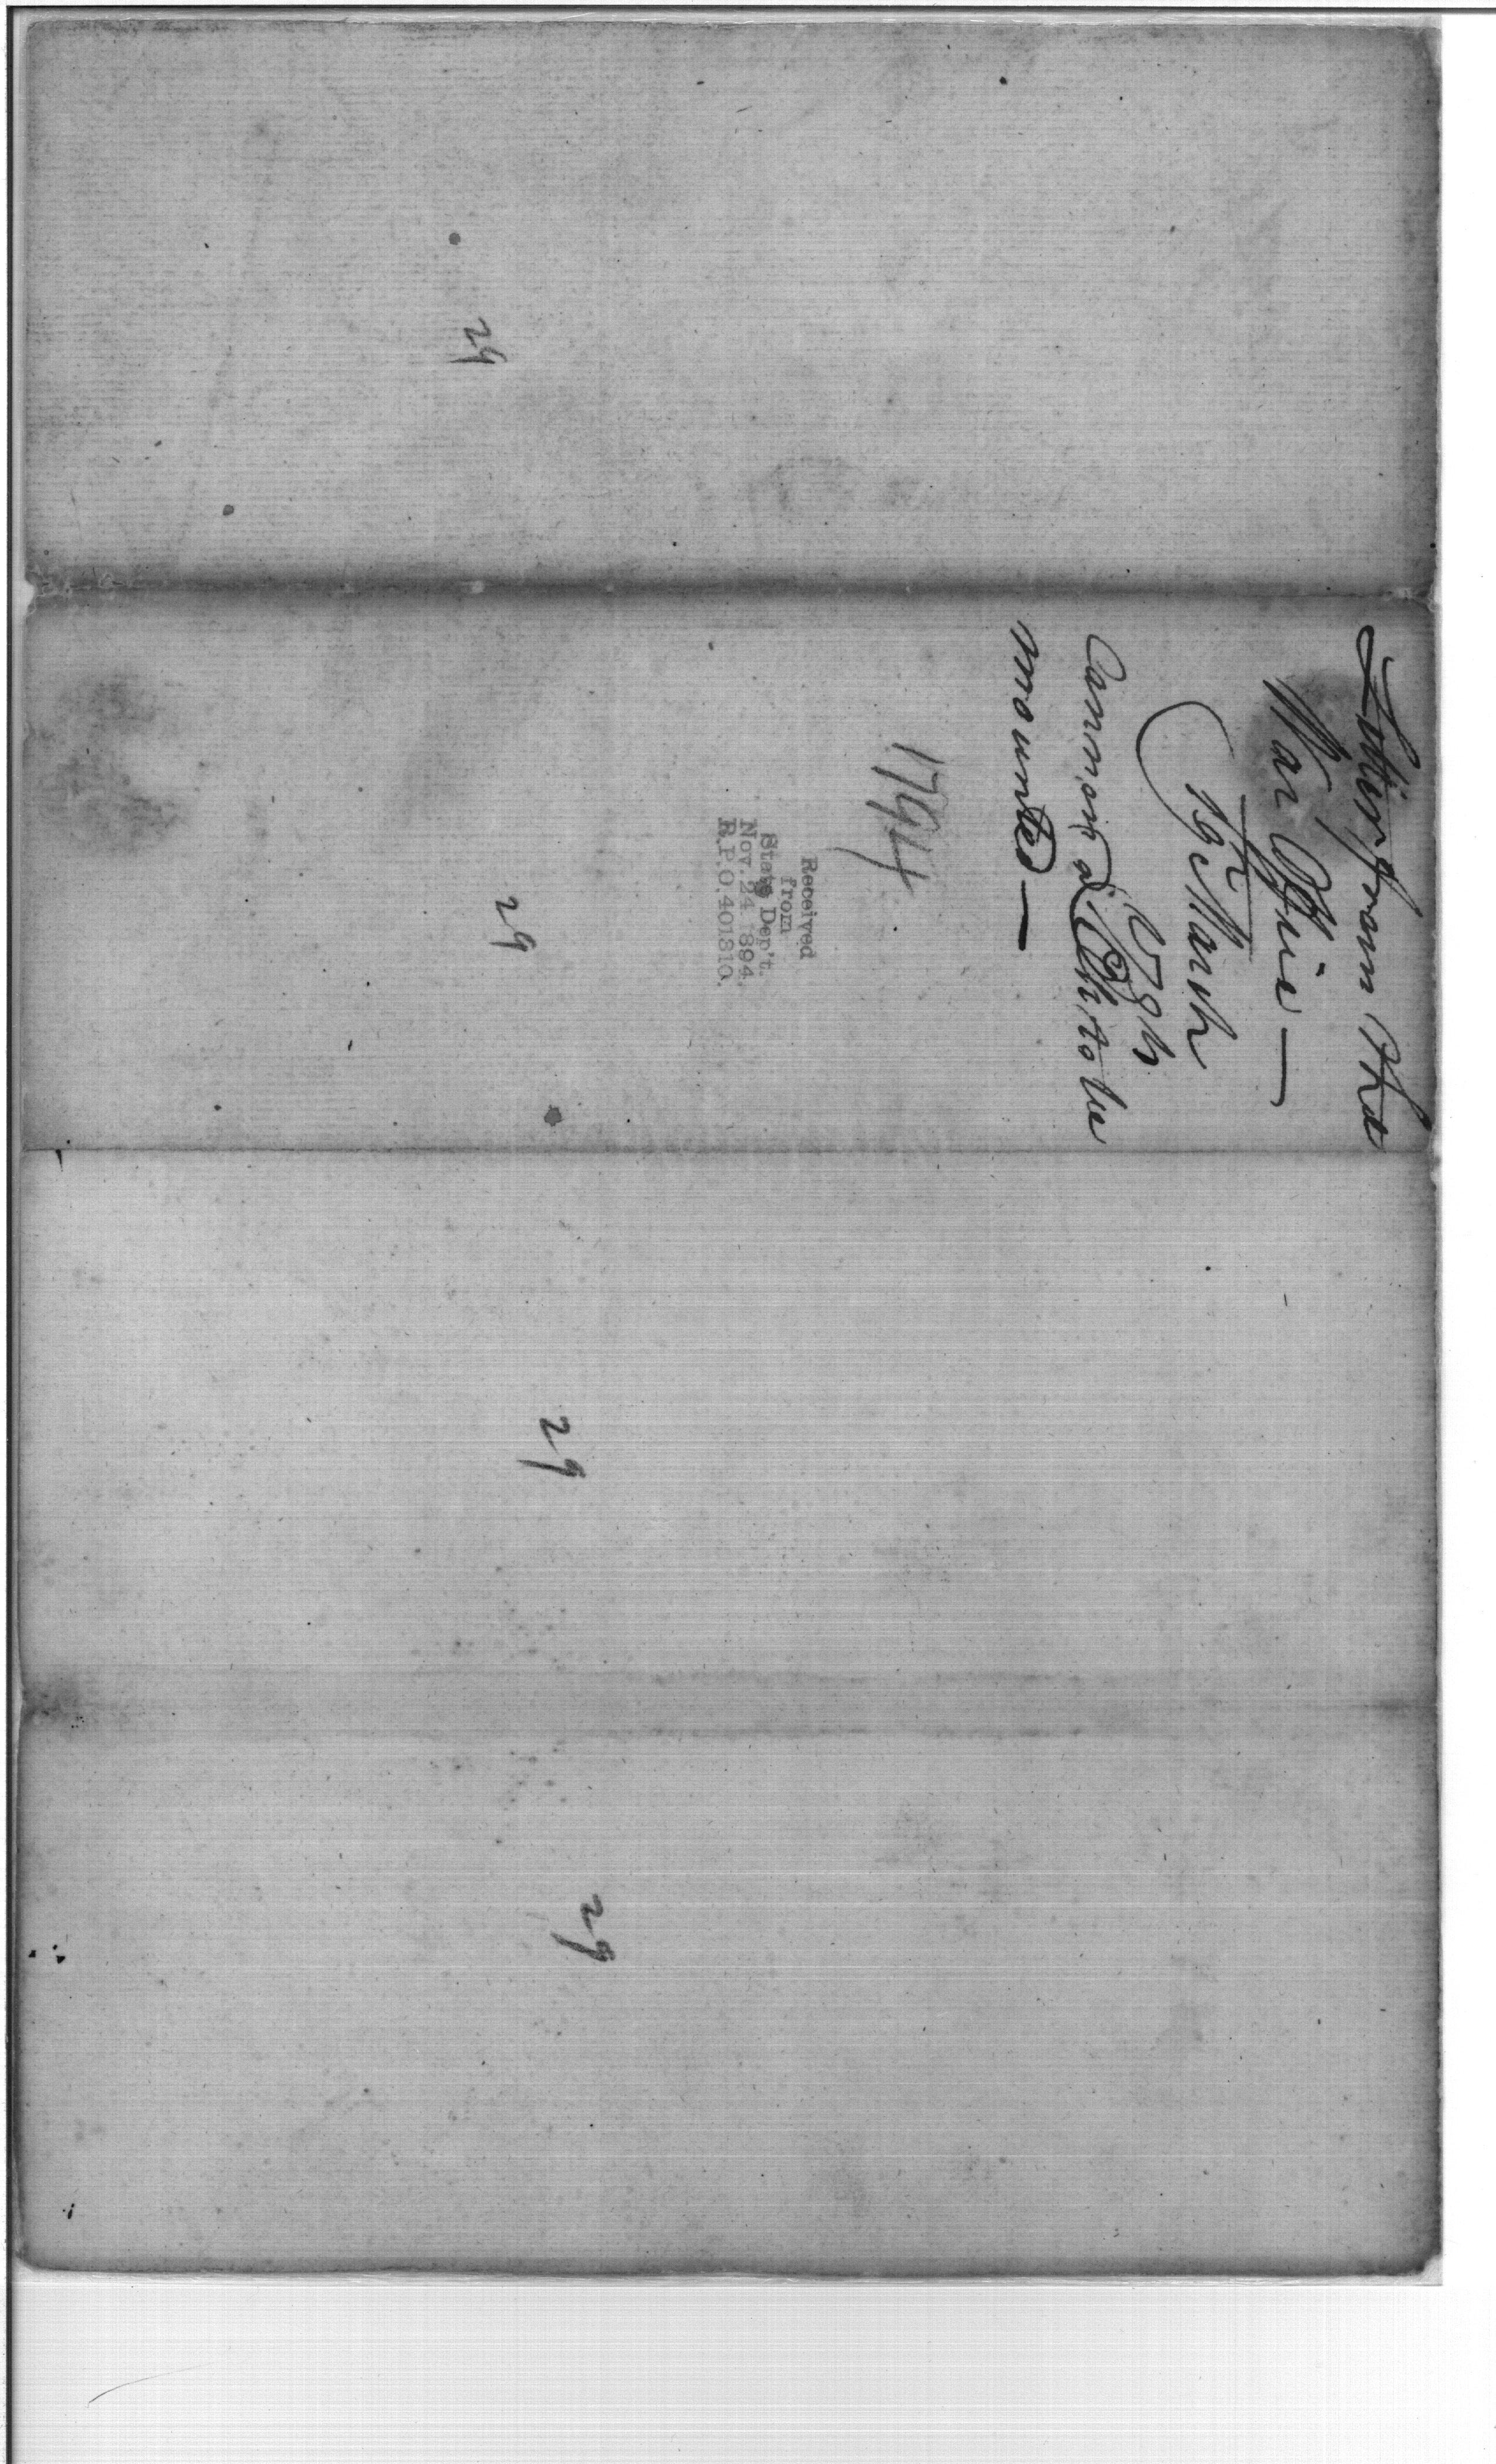 Letter from the
War Office —
19th March
Cannon at
to be
mounted —
1794
Received
from
State Dep't.
Nov. 24 1894.
R.P.O. 401310.
29
29
29
29